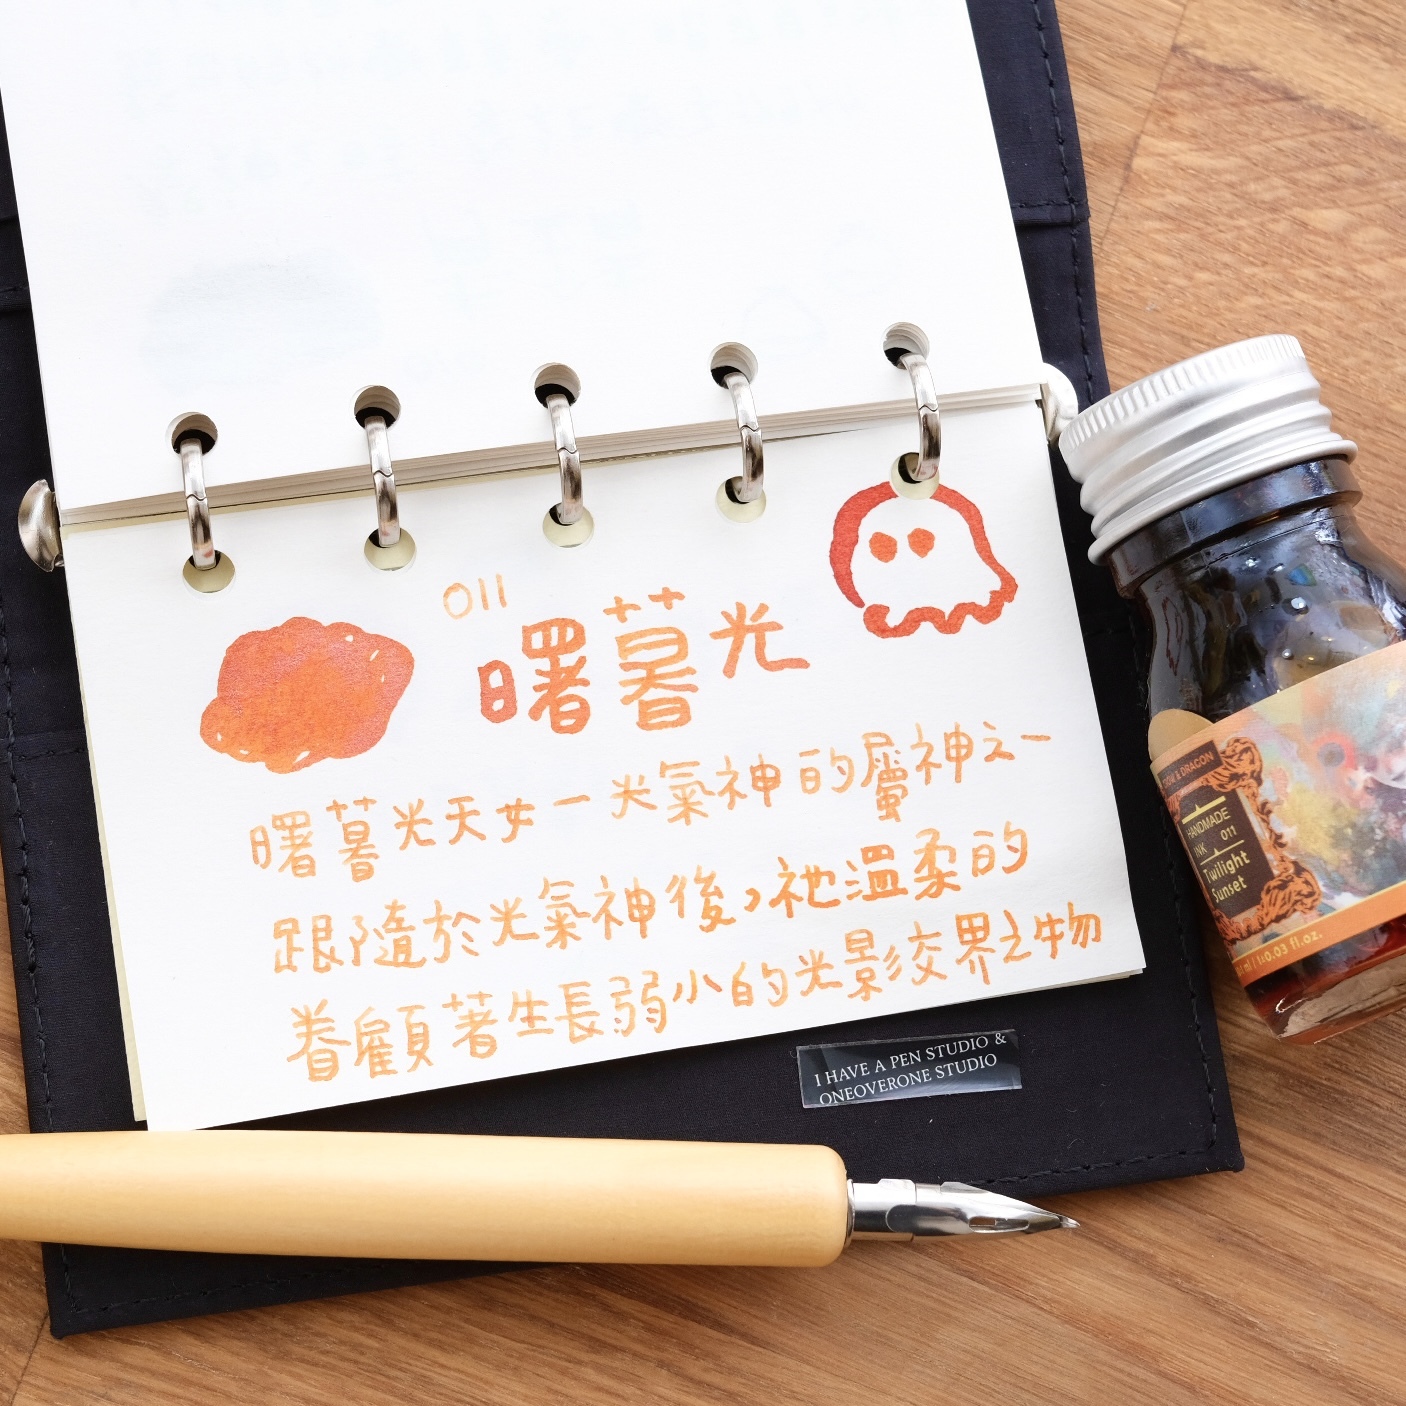 011
曙暮光
曙暮光天女一光氣神的屬神之一
跟隨於光氣神後,祂溫柔的
眷顧著生長弱小的光影交界之物
& DRAGON
HANDMADE
INK 011
Twilight
Sunset
fl.oz.
I HAVE A PEN STUDIO &
ONEOVERONE STUDIO